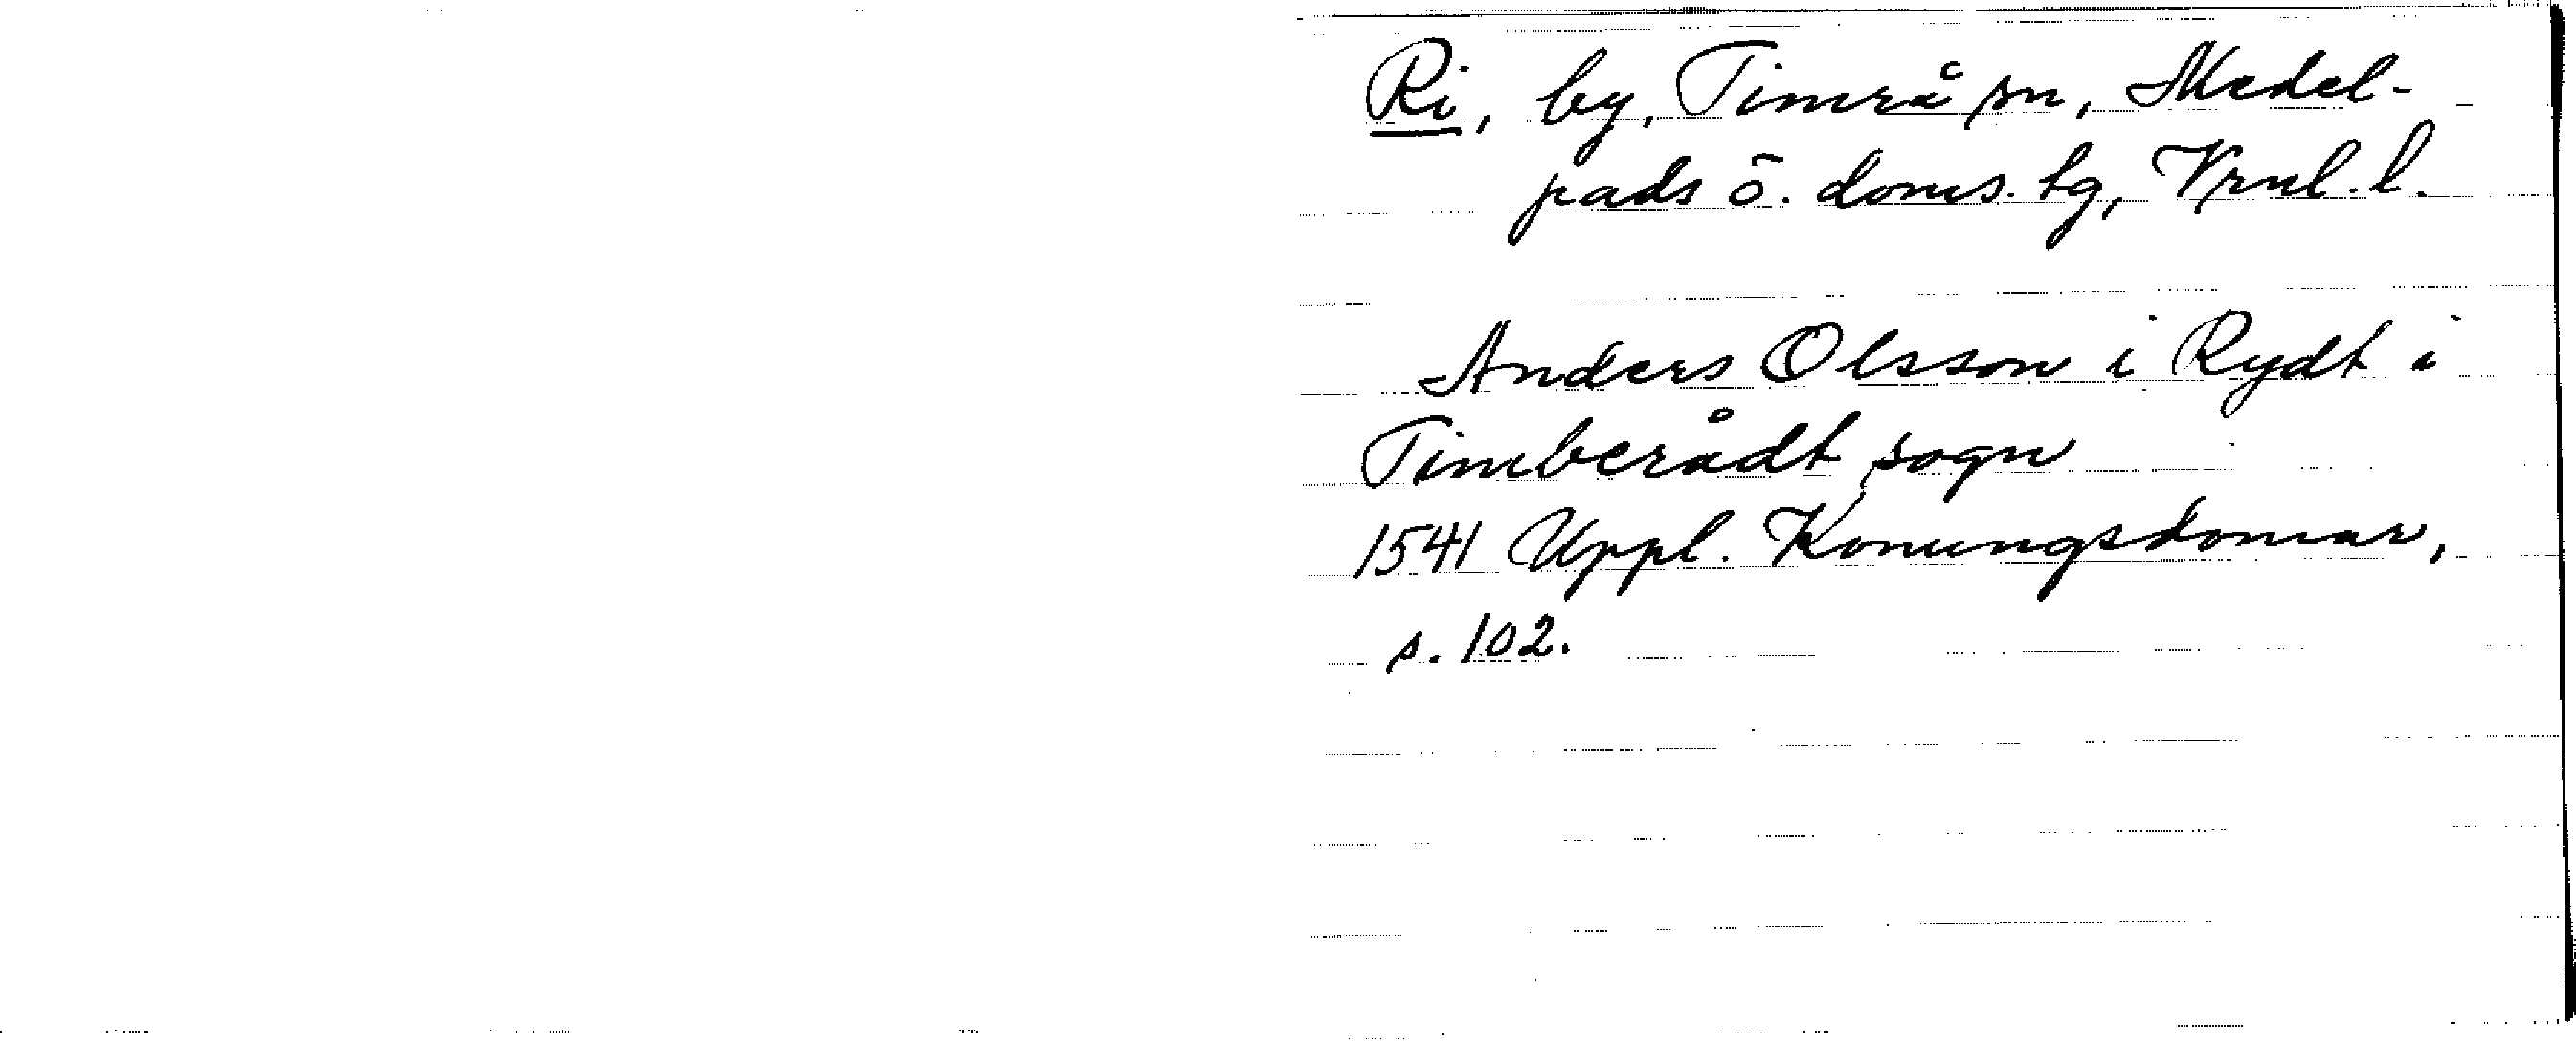 Ri, by, Timrå sn, Medel-
pads ö. doms. tg, Vrnl. l.
Anders Olsson i Rydt i
Timberådt sogn
1541 Uppl. Konungsdomar,
s. 102.